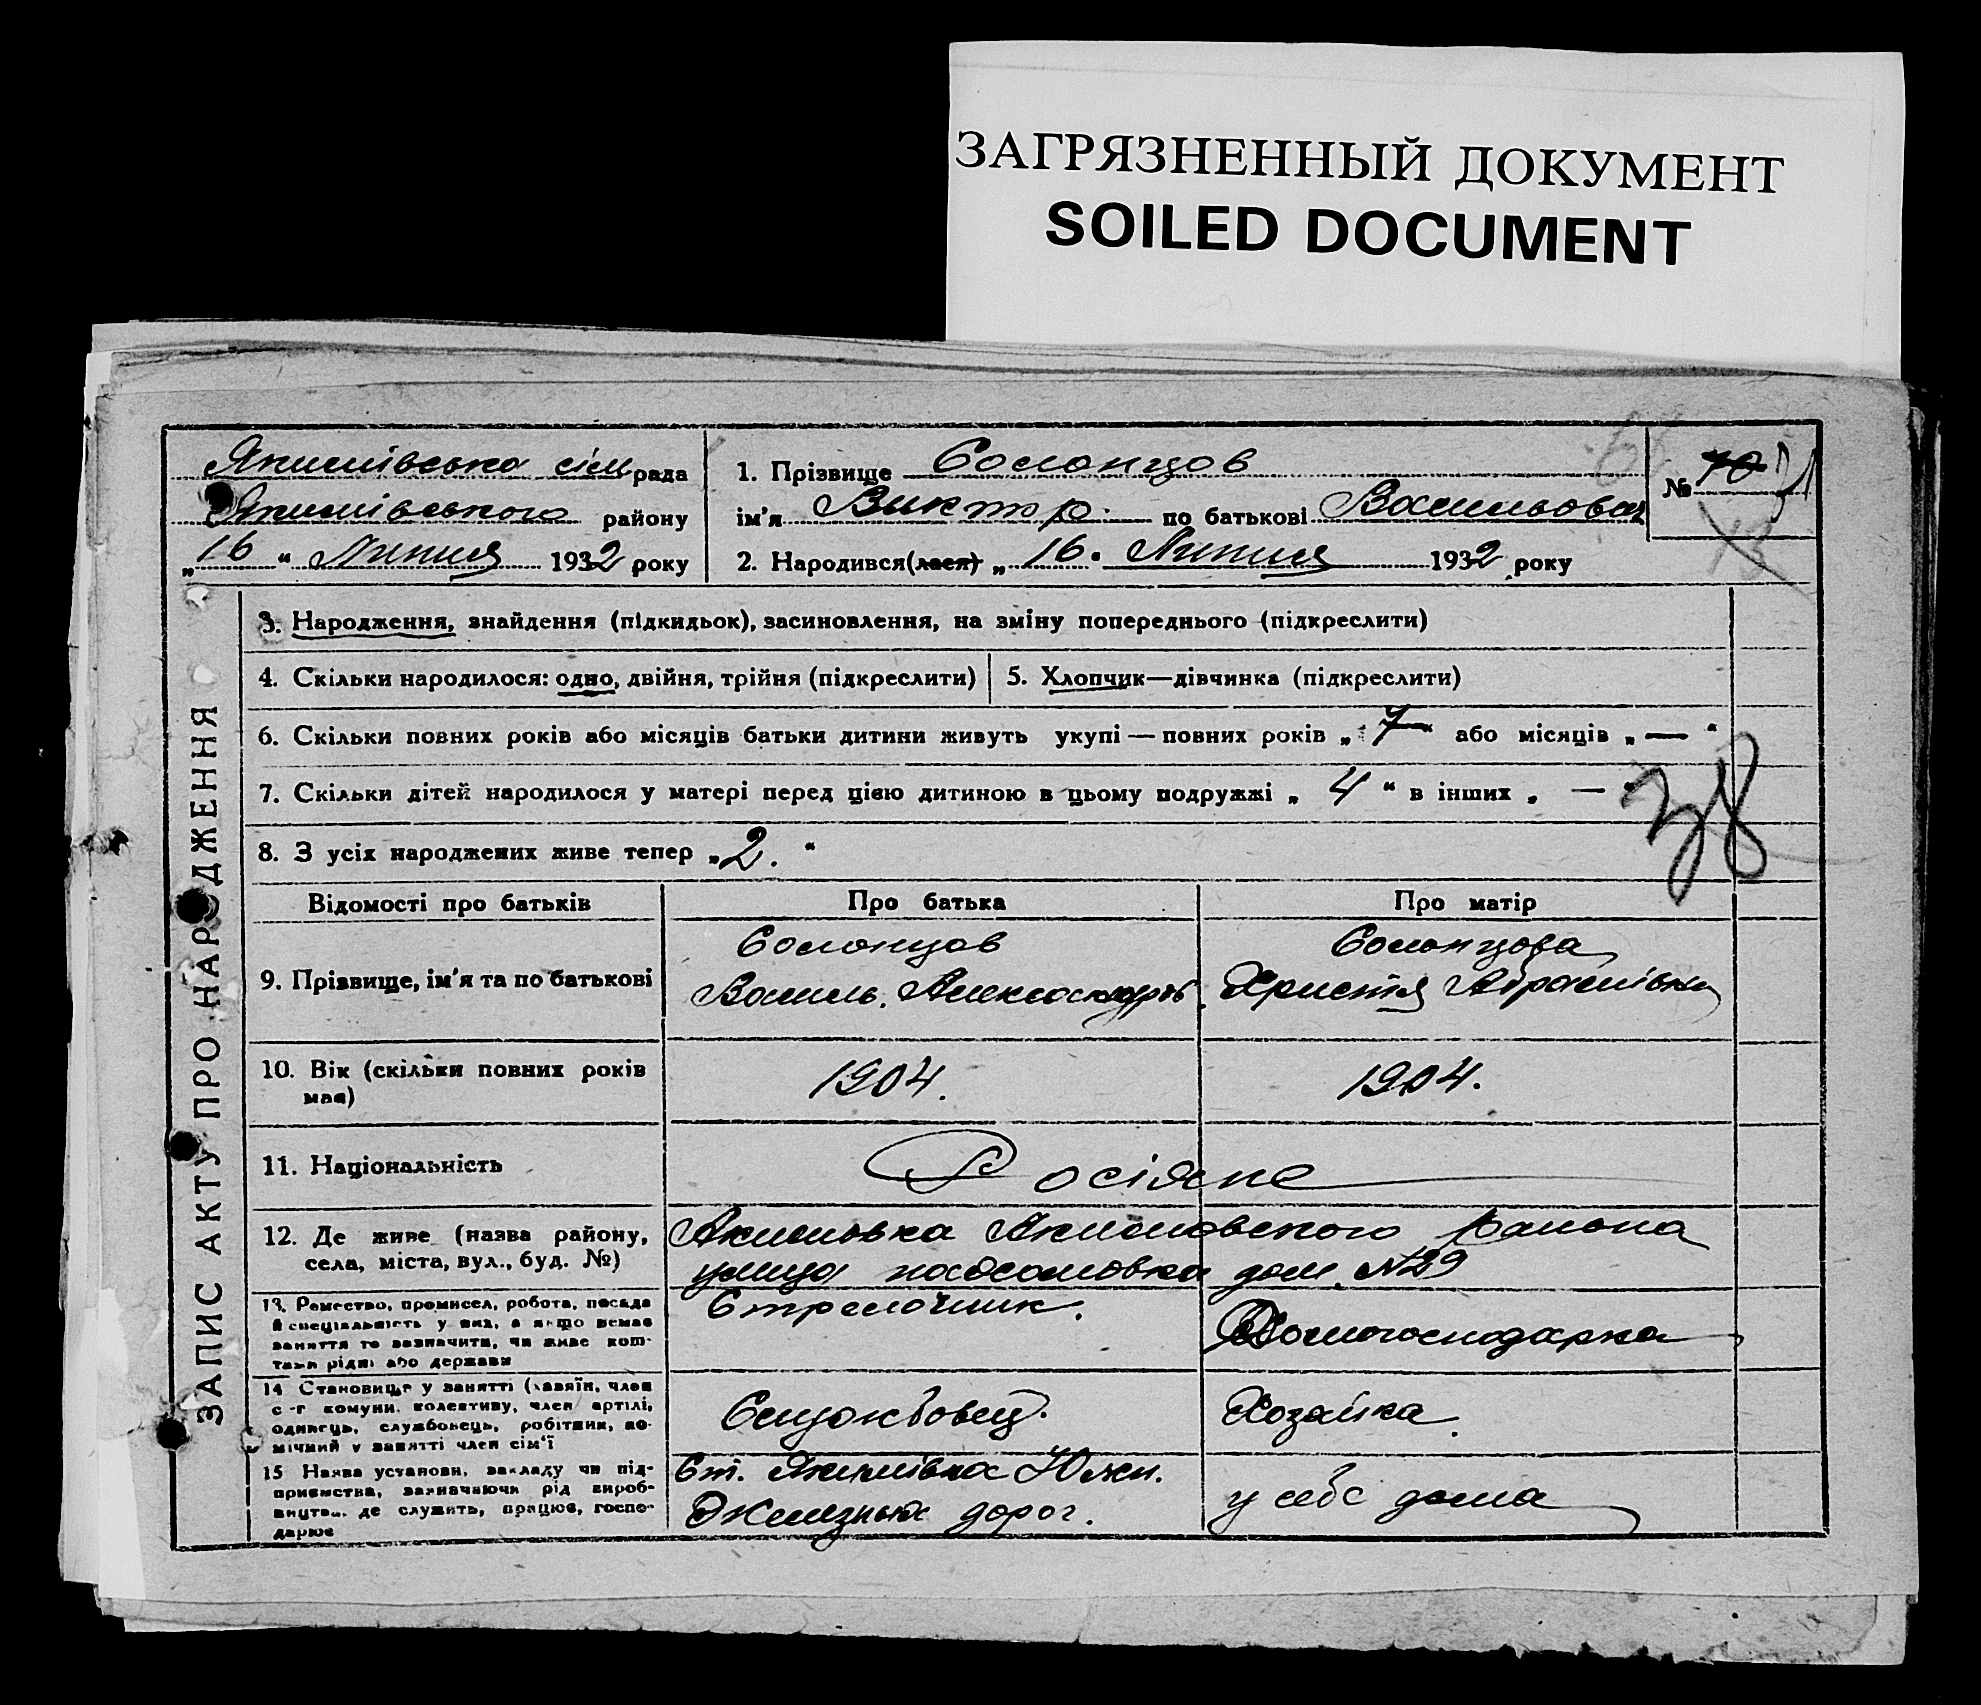 ЗАГРЯЗНЕННЫЙ ДОКУМЕНТ
SOILED DOCUMENT
Якимівська сіль рада
Якимівського району
„16“ Липня 1932 року
1. Прізвище Солонцов
ім'я Виктор по батькові Васильович
№ 70 71
2. Народився(лася) „16. Липня 1932 року
ЗАПИС АКТУ ПРО НАРОДЖЕННЯ
3. Народження, знайдення (підкидьок), засиновлення, на зміну попереднього (підкреслити)
4. Скільки народилося: одно, двійня, трійня (підкреслити)
5. Хлопчик—дівчинка (підкреслити)
6. Скільки повних років або місяців батьки дитини живуть укупі — повних років „7“ або місяців „—“
7. Скільки дітей народилося у матері перед цією дитиною в цьому подружжі „4“ в інших „ —
38
8. З усіх народжених живе тепер „2.“
Відомості про батьків
Про батька
Про матір
9. Прізвище, ім'я та по батькові
Солонцов
Василь. Александров.
Солонцова
Христя Абрамівна
10. Вік (скільки повних років
має)
1904.
1904.
11. Національність
Росіяне
12. Де живе (назва району,
села, міста, вул., буд. №)
Акимовка Акимовского района
улица дом №29
13. Ремество, промисел, робота, посада
й спеціяльність у них, а якщо немає
заняття то зазначити, чи живе кош-
тами рідні або держави
Стрелочник.
Домогосподарка
14 Становище у занятті (хазяїн, член
с-г комуни, колективу, член артілі,
одинець, службовець, робітник, по-
мічний у занятті член сім'ї
Хозяйка.
15 Назва установи, закладу чи під-
приємства, зазначаючи рід вироб-
ництва, де служить, працює, госпо-
дарює
Ст. Якимівка Южн.
Железных дорог.
у себе дома